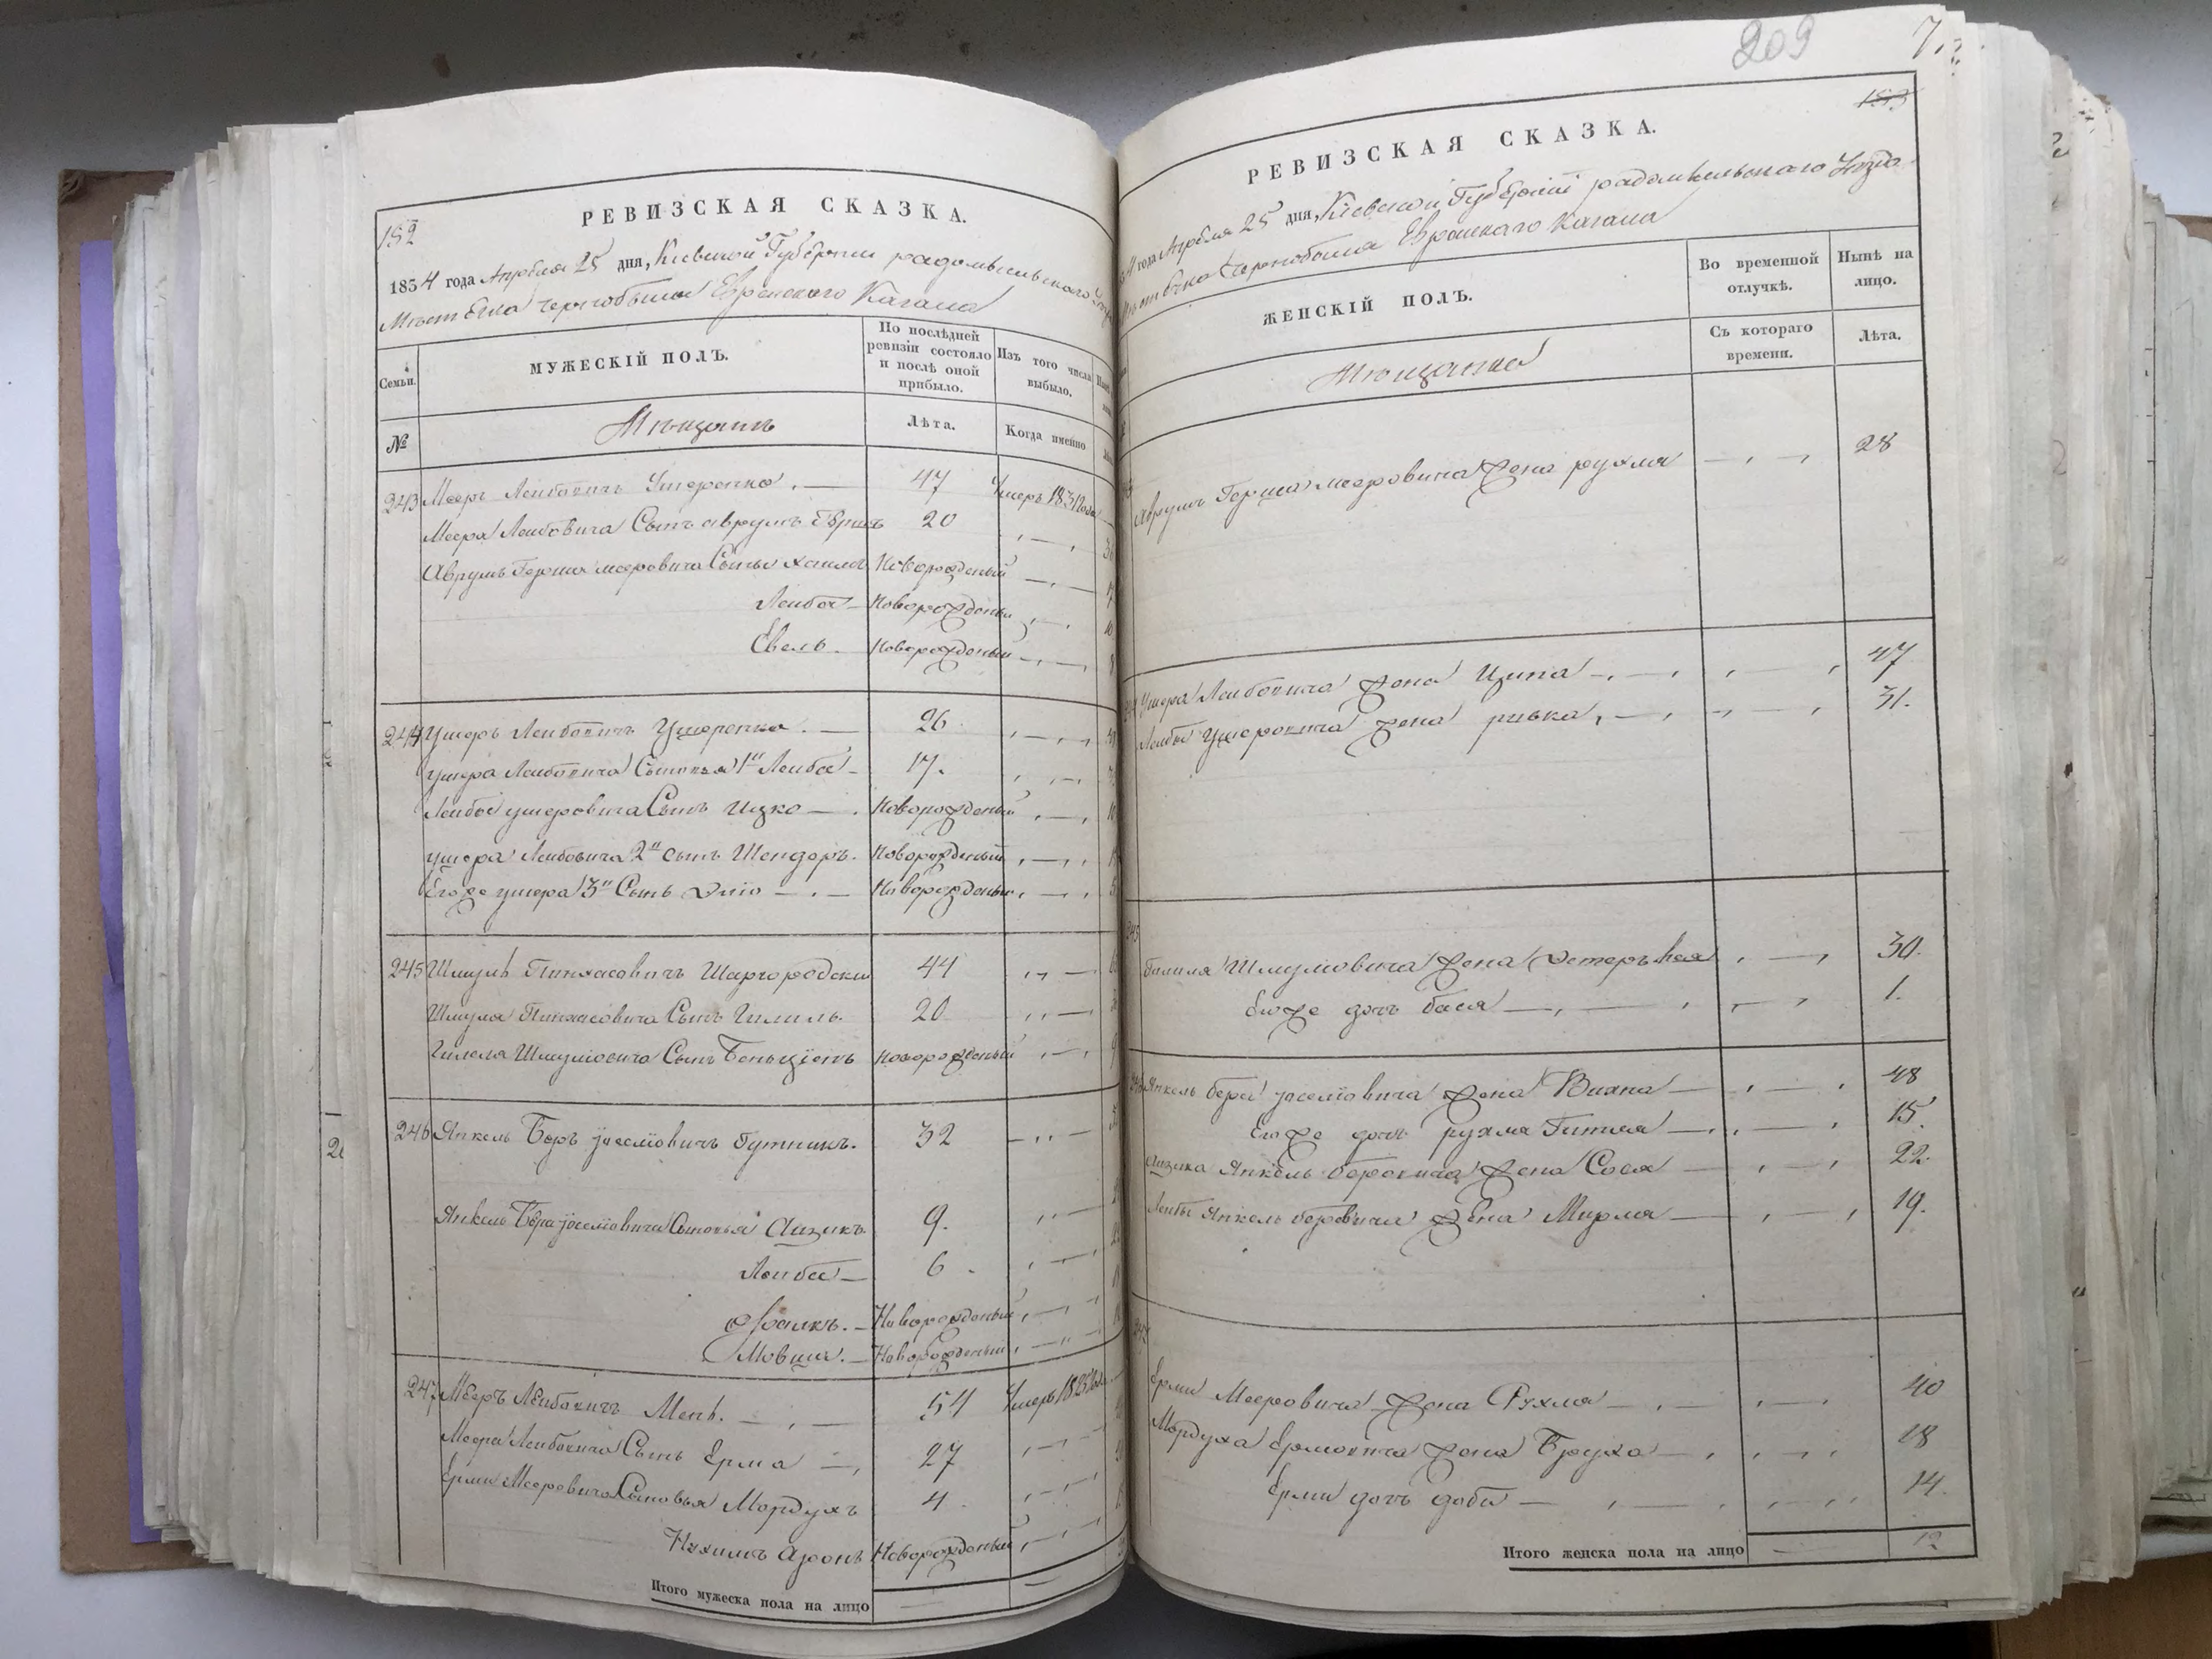 152
РЕВИЗСКАЯ СКАЗКА.
1834 года Апреля 25 дня, Киевской Губернии радомысльского
Местечка Чернобыля Еврейского Кагала
Семьи.
МУЖЕСКІЙ ПОЛЪ.
По послѣдней ревизіи состояло и послѣ оной прибыло.
Изъ того числа выбыло.
№
Мещанъ
Лѣта.
Когда именно
243 Мееръ Лейбовичъ Ушеренко. — 47 Умеръ 1831 года
Меера Лейбовича Сынъ аврумъ Гершъ 20
Аврумъ Герша мееровича Сынъ хаимъ Новорожденый
Лейба — Новорожденый
Евель. Новорожденый
244 Ушеръ Лейбовичъ Ушеренко. — 26
ушера Лейбовича Сыновья 1й Лейба — 17.
Лейбы ушеровича Сынъ Ицко — Новорожденый
ушера Лейбовича 2й сынъ Шендоръ. Новорожденый
Егоже ушера 3й Сынъ Эліо — Новорожденый
245 Шмуль Пинхасовичъ Шаргородски 44
Шмуля Пинхасовича Сынъ Гилиль. 20
Гилеля Шмулиовича Сынъ Беньціенъ Новорожденый
246 Янкель Беръ іоселіовичъ Гутникъ. 32
Янкель Бера іоселіовича Сыновья Аизикъ. 9.
Лейба — 6
Фалкъ. — Новорожденый
Мовша. — Новорожденый
247 Мееръ Лейбовичъ Мень. — 54 Умеръ 1825 года
Меера Лейбовича Сынъ Ерма — 27
Ерми Мееровича Сыновья Мордухъ 4
Нухимъ Аронъ Новорожденый
Итого мужеска пола на лицо
209
7.
153
РЕВИЗСКАЯ СКАЗКА.
года Апреля 25 дня, Киевской Губерніи радомысльского Уезда
Местечка Чернобыля Еврейскаго Кагала
ЖЕНСКІЙ ПОЛЪ.
Во временной отлучкѣ.
Нынѣ на лицо.
Мещанки
Съ котораго времени.
Лѣта.
Аврумъ Герша мееровича Жена рухля 28
Ушера Лейбовича жена Ципа — 47
Лейбы Ушеровича жена ривка, — 31.
Гилиля Шмулиовича Жена Эстеръ хая 30.
Еюже дочь бася — 1.
Янкель бера іоселіовича Жена Вихна — 48
Егоже дочь рухля Гитля — 15.
Аизика Янкель беровича Жена Сося — 22
Лейбы Янкель беровича Жена Мирля — 19.
Ерми Мееровича Жена Рухля — 40
Мордуха Ермовича жена Бруха — 18
Ерми дочь доба — 14.
Итого женска пола на лицо 12